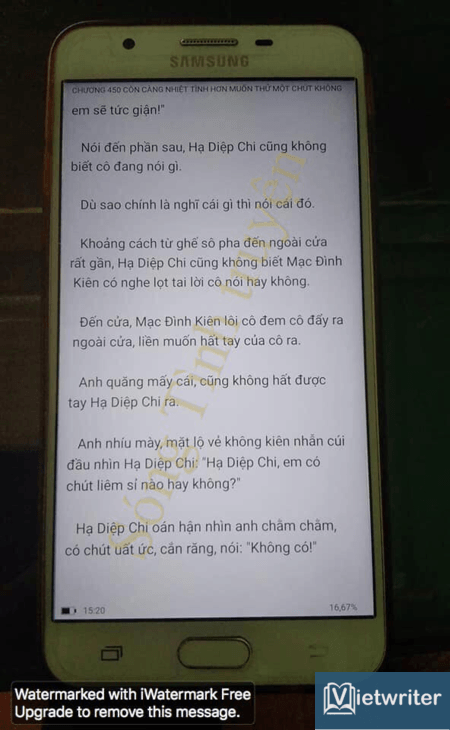 SAMSUNG
CHƯƠNG 450 CÒN CÀNG NHIỆT TÌNH HƠN MUỐN THỬ MỘT CHÚT KHÔNG
em sẽ tức giận!"
Nói đến phần sau, Hạ Diệp Chi cũng không
biết cô đang nói gì.
Dù sao chính là nghĩ cái gì thì nói cái đó.
Khoảng cách từ ghế sô pha đến ngoài cửa
rất gần, Hạ Diệp Chi cũng không biết Mạc Đình
Kiên có nghe lọt tai lời cô nói hay không.
Đến cửa, Mạc Đình Kiên lôi cô đem cô đẩy ra
ngoài cửa, liền muốn hất tay của cô ra.
Anh quăng mấy cái, cũng không hất được
tay Hạ Diệp Chi ra.
Anh nhíu mày, mặt lộ vẻ không kiên nhẫn cúi
đầu nhìn Hạ Diệp Chi: "Hạ Diệp Chi, em có
chút liêm sỉ nào hay không?"
Hạ Diệp Chi oán hận nhìn anh chằm chằm,
có chút uất ức, cắn răng, nói: "Không có!"
Sóng Tình truyện
15:20
16,67%
Watermarked with iWatermark Free
Upgrade to remove this message.
Vietwriter